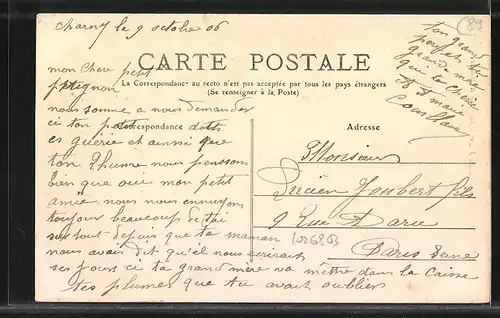 Charny le 9 octobre 06
(89)
CARTE POSTALE
La Correspondance au recto n'est pas acceptée par tous les pays étrangers
(Se renseigner à la Poste)
mon Chere petit
nous somme a nous demander
ci ton
Correspondance
es guérie et ainsi que
ton Rhume nous penssons
bien que oui mon petit
amie nous nous ennuyons
toujour beaucoup de toi
surtout depuis que ta maman
nous avais dit qu'il nous
ses jours ci ta grand mère va mettre dans la Caisse
tes plumes que tu avait oublier
ton grand
grand mère
qui te
Adresse
Monsieur
Lucien Joubert fils
9 Rue Daru
Paris Seine
1026853